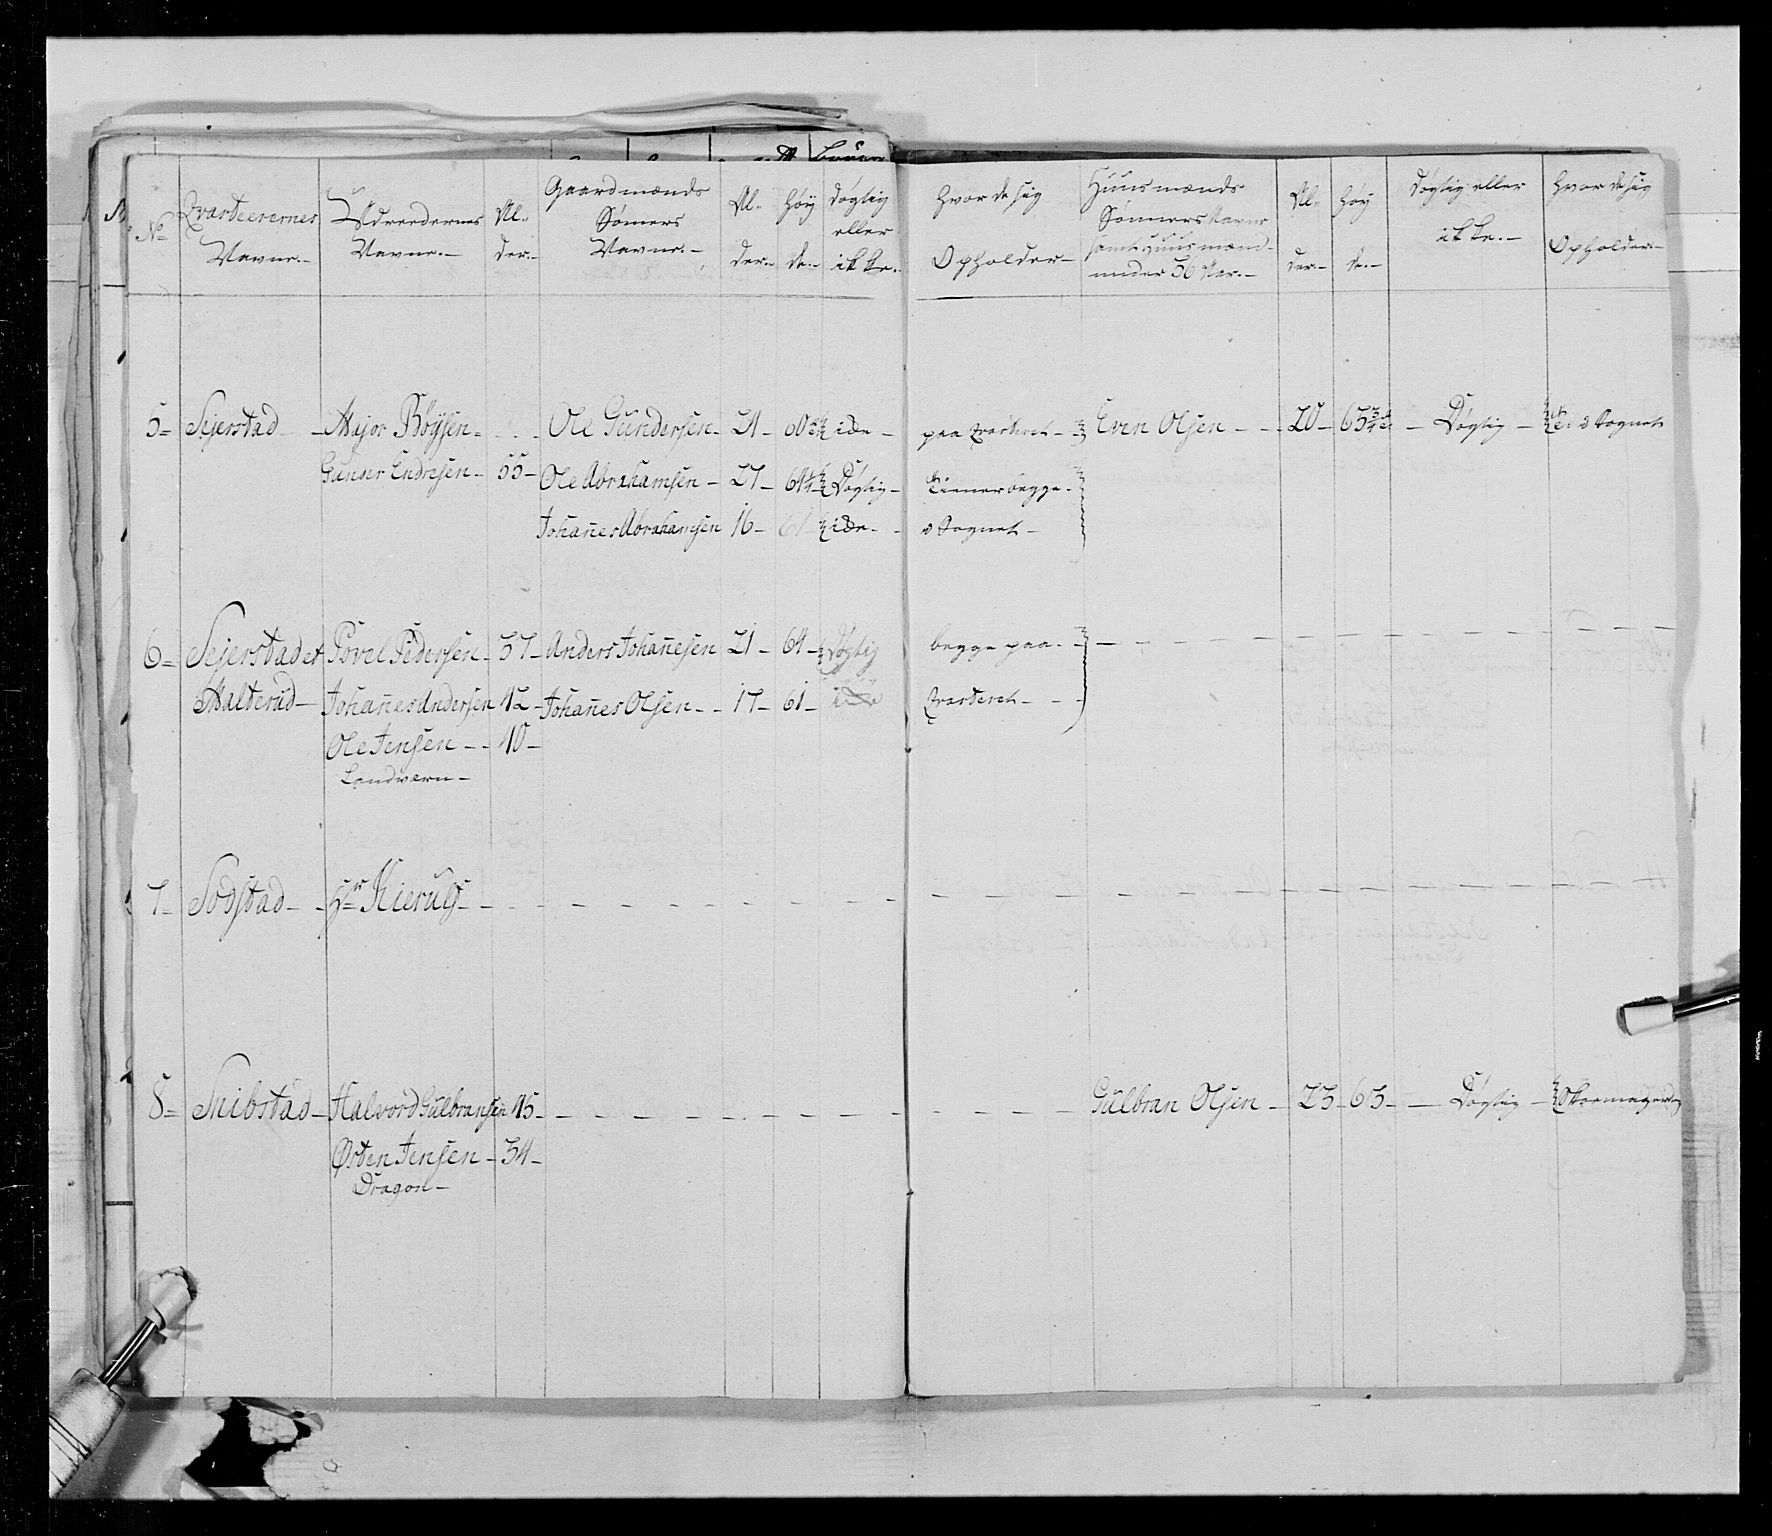 No Qvarteerernes Navne.- Udreedernes Navne.- Al- der.- Gaardmænds Sønners Navne.- Al- der.- Høy de.- døgtig eller ikke.- Hvor de sig Opholder.- Huusmænds Sønners Navne samt Huusmænd under 36 Aar.- Al- der.- Høy de.- døgtig eller ikke.- Hvor de sig Opholder.-
5= Sejerstad - Major Böysen - Ole Gundersen - 24 - paa Qvarteret - Even Olsen - 20 - 63 3/4 - Døgtig - Sognet
Gunder Endresen - 55 - Ole Abrahamsen - 27 - 64 Døgtig - tiener begge
Johañes Abrahamsen 16 - 61 - i Sognet -
6= Sejerstad et Povel Pedersen - 37 - Anders Johañesen 21 - 64 - Døgtig begge paa -
Malterud - Johañes Andersen 42 - Johañes Olsen - 17 - 61 - Qvarteret -
Ole Jensen - 40 -
Landværn -
7= Sodstad - Hr Kierulf -
8= Snibstad - Halvord Gulbransen 45 - Gulbran Olsen - 23 - 63 - Døgtig - Skoemager
Østen Jensen - 34 -
Dragon -